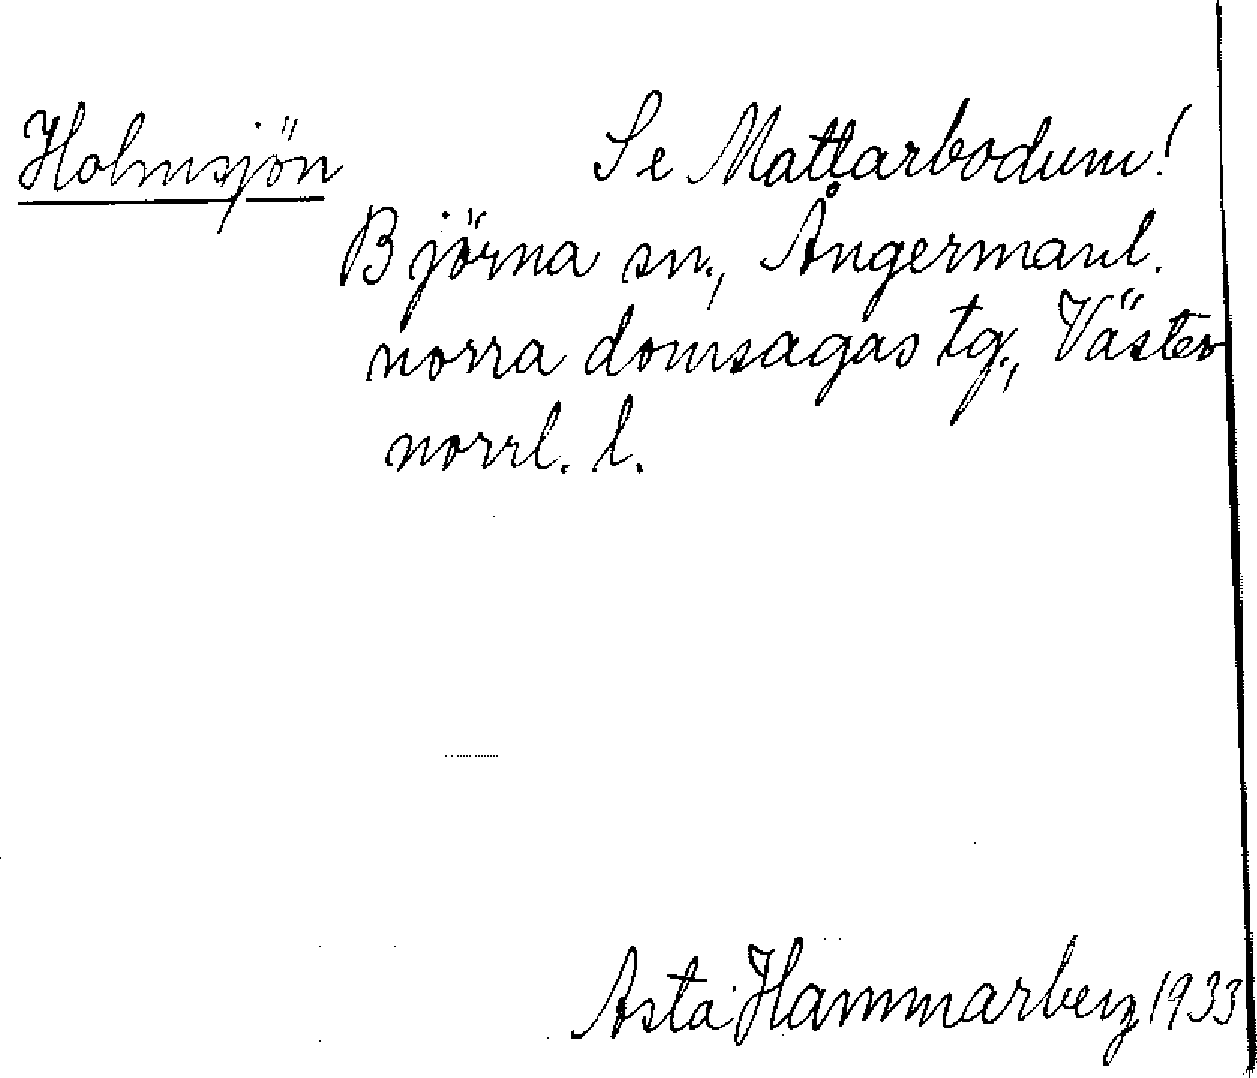 Holmsjön Se Mattarbodum!
Björna sn., Ångermanl.
norra domsagas tg., Väster
norrl. l.
Asta Hammarberg 1933